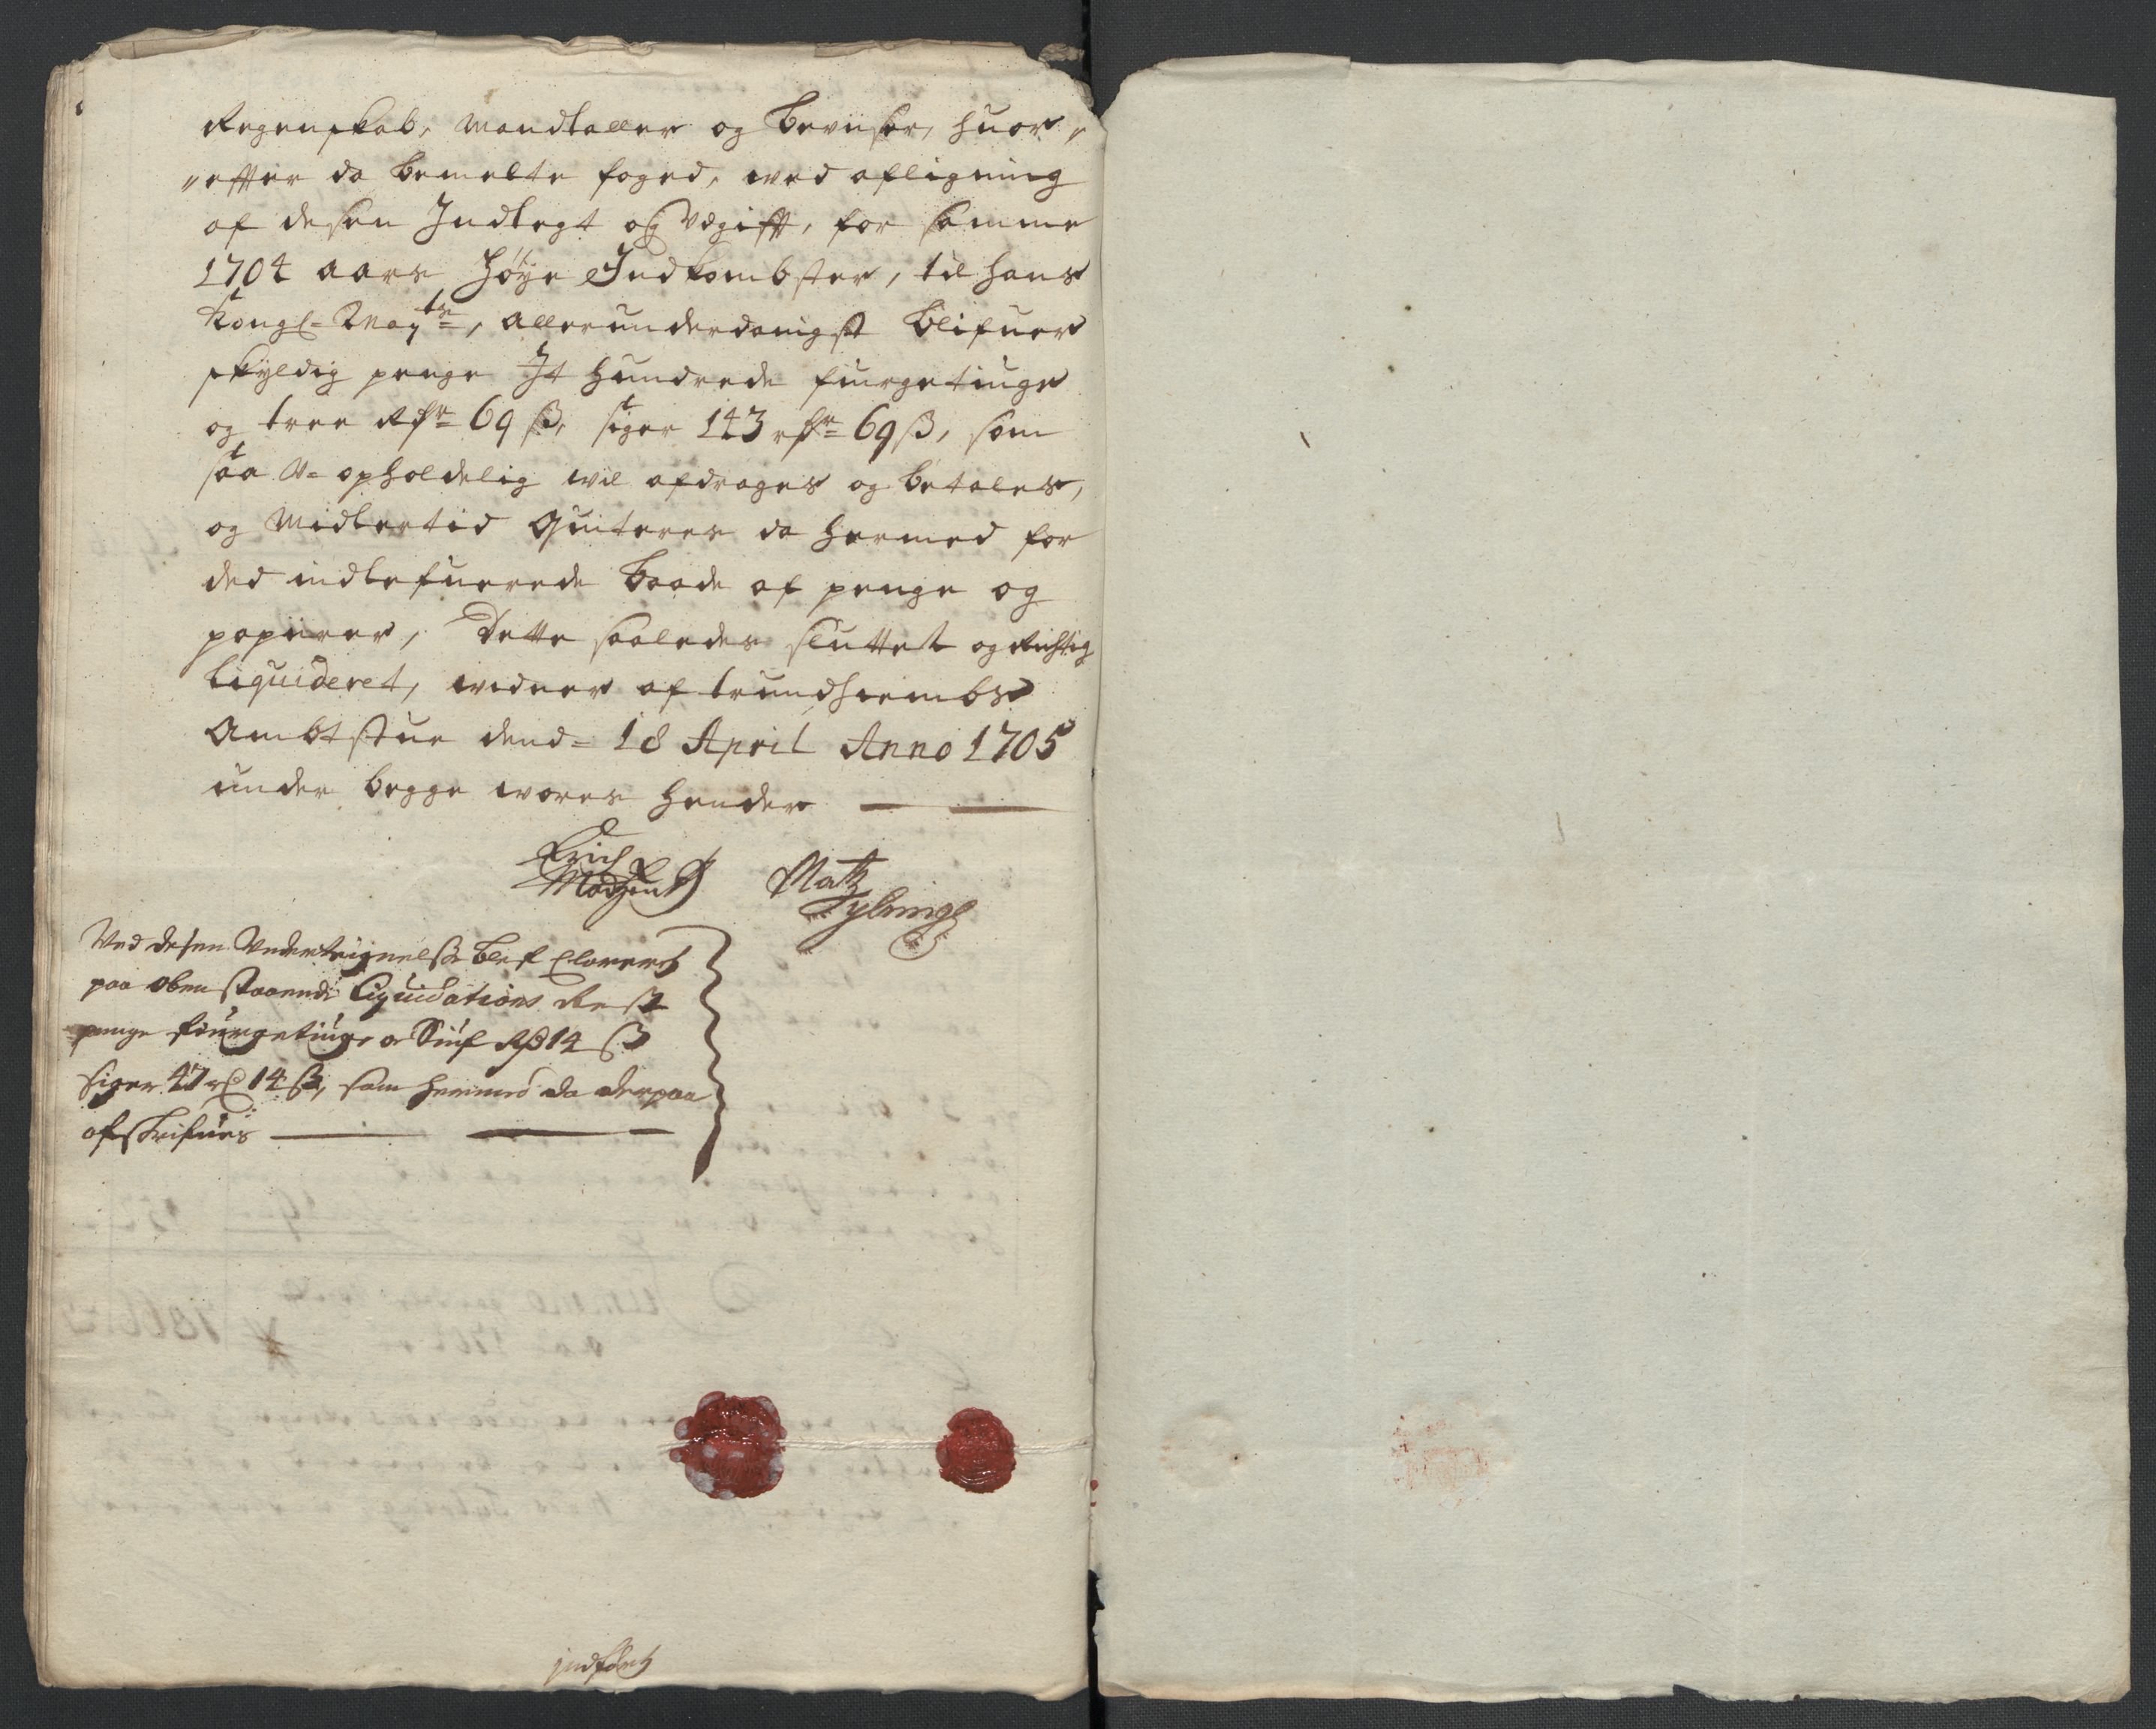 Regenskab, Mandtaller og beviiser, huor„
„effter da bemelte foged, ved afligning
af desen Indtegt og Vdgifft, for samme
1704 aars høye Indkombster, til hans
Kongl= May.ts=, allerunderdanigst blifuer
skyldig penge It hundrede fiurgetiuge
og tree Rdr= 69 ß, siger 143 rdr= 69 ß, som
saa V=opholdelig vil afdrages og betales,
og Midlertid Quiteres da hermed for
ded indlefuerede baade af penge og
papiirer, Dette saaledes sluttet og Richtig
liquideret, vidner af trundhiembs
Ambtstue dend= 18 April Anno 1705
under begge vores hender
Erich
Madzen
Matz
Tylsing
Ved desen Vnderteignelse blef Clareret
paa obenstaaende Liquidations Rest
penge fiurgetiuge og Siuf Rd 14 ß
siger 47 rd 14 ß, som hermed da derpaa
afskrifues
indført